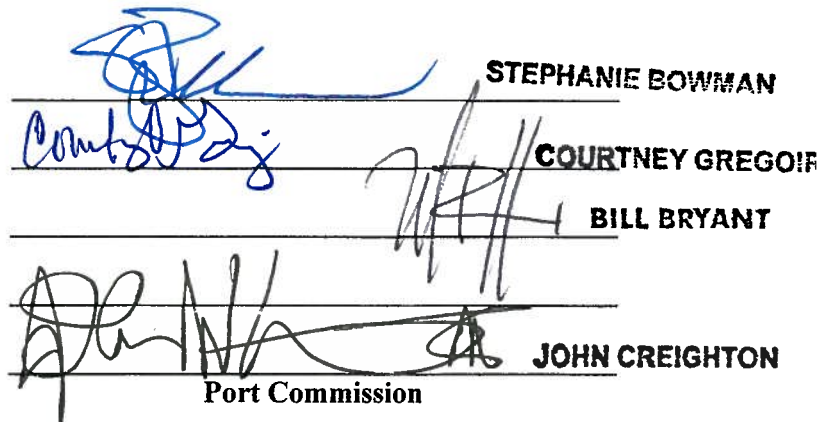 STEPHANIE BOWMAN
COURTNEY GREGOIR
BILL BRYANT
JOHN CREIGHTON
Port Commission